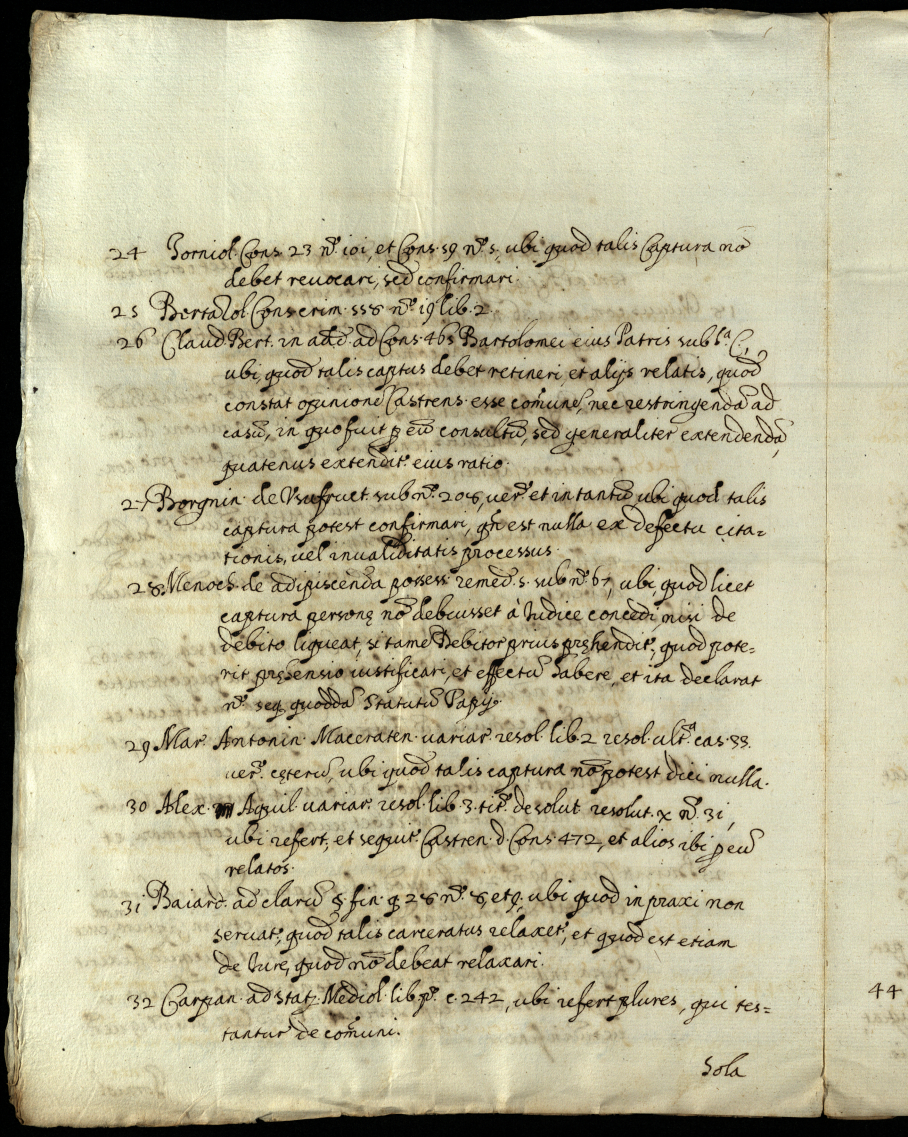 24 Sorniol. Cons. 23 nº. 101, et Cons. 59 nº. 5, ubi quod talis Captura nō
debet revocari, sed confirmari.
25 Bertazol. Cons. crim. 558 nº. 19 lib. 2.
26 Claud. Bert. in add. ad Cons. 465 Bartolomei eius Patris sub lrª. C,
ubi, quod talis captus debet retineri, et alijs relatis, quod
constat opinionē Castrens. esse comunē, nec restringendā ad
casū, in quo fuit p eū consultū, sed generaliter extendendā,
quatenus extendit. eius ratio.
27 Borgnin. de Usufruct. sub nº. 208, ver. et in tantū ubi quod talis
captura potest confirmari, qn̄ est nulla ex defectu cita=
tionis, vel invaliditatis processus.
28 Menoch. de adipiscenda possess. remed. 5. sub nº. 67, ubi, quod licet
captura personę nō debuisset à Iudice concedi nisi de
debito liqueat, si tamē Debitor prius pręhendit., quod pote=
rit pręhensio iustificari, et effectū habere, et ita declarat
nº. seq. quoddā Statutū Papię.
29 Mar. Antonin. Maceraten. variar. resol. lib. 2 resol. ultª. cas. 33.
ver. cęterū, ubi quod talis captura nō potest dici nulla.
30 Alex. Aquil. variar. resol. lib. 3. tit. de solut. resolut. x nº. 31,
ubi refert, et sequit. Castren. d. Cons. 472, et alios ibi p eū
relatos.
31 Baiard. ad clarū §. fin. q. 28 nº. 8, et 9. ubi quod in praxi non
servat., quod talis carceratus relaxet., et quod est etiam
de Iure, quod nō debeat relaxari.
32 Carpan. ad stat. Mediol. lib. pº. c. 242, ubi refert plures, qui tes=
tantur de comuni.
Sola
44